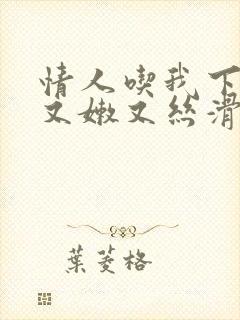 情人喫我下
又嫩又絲滑
葉菱格